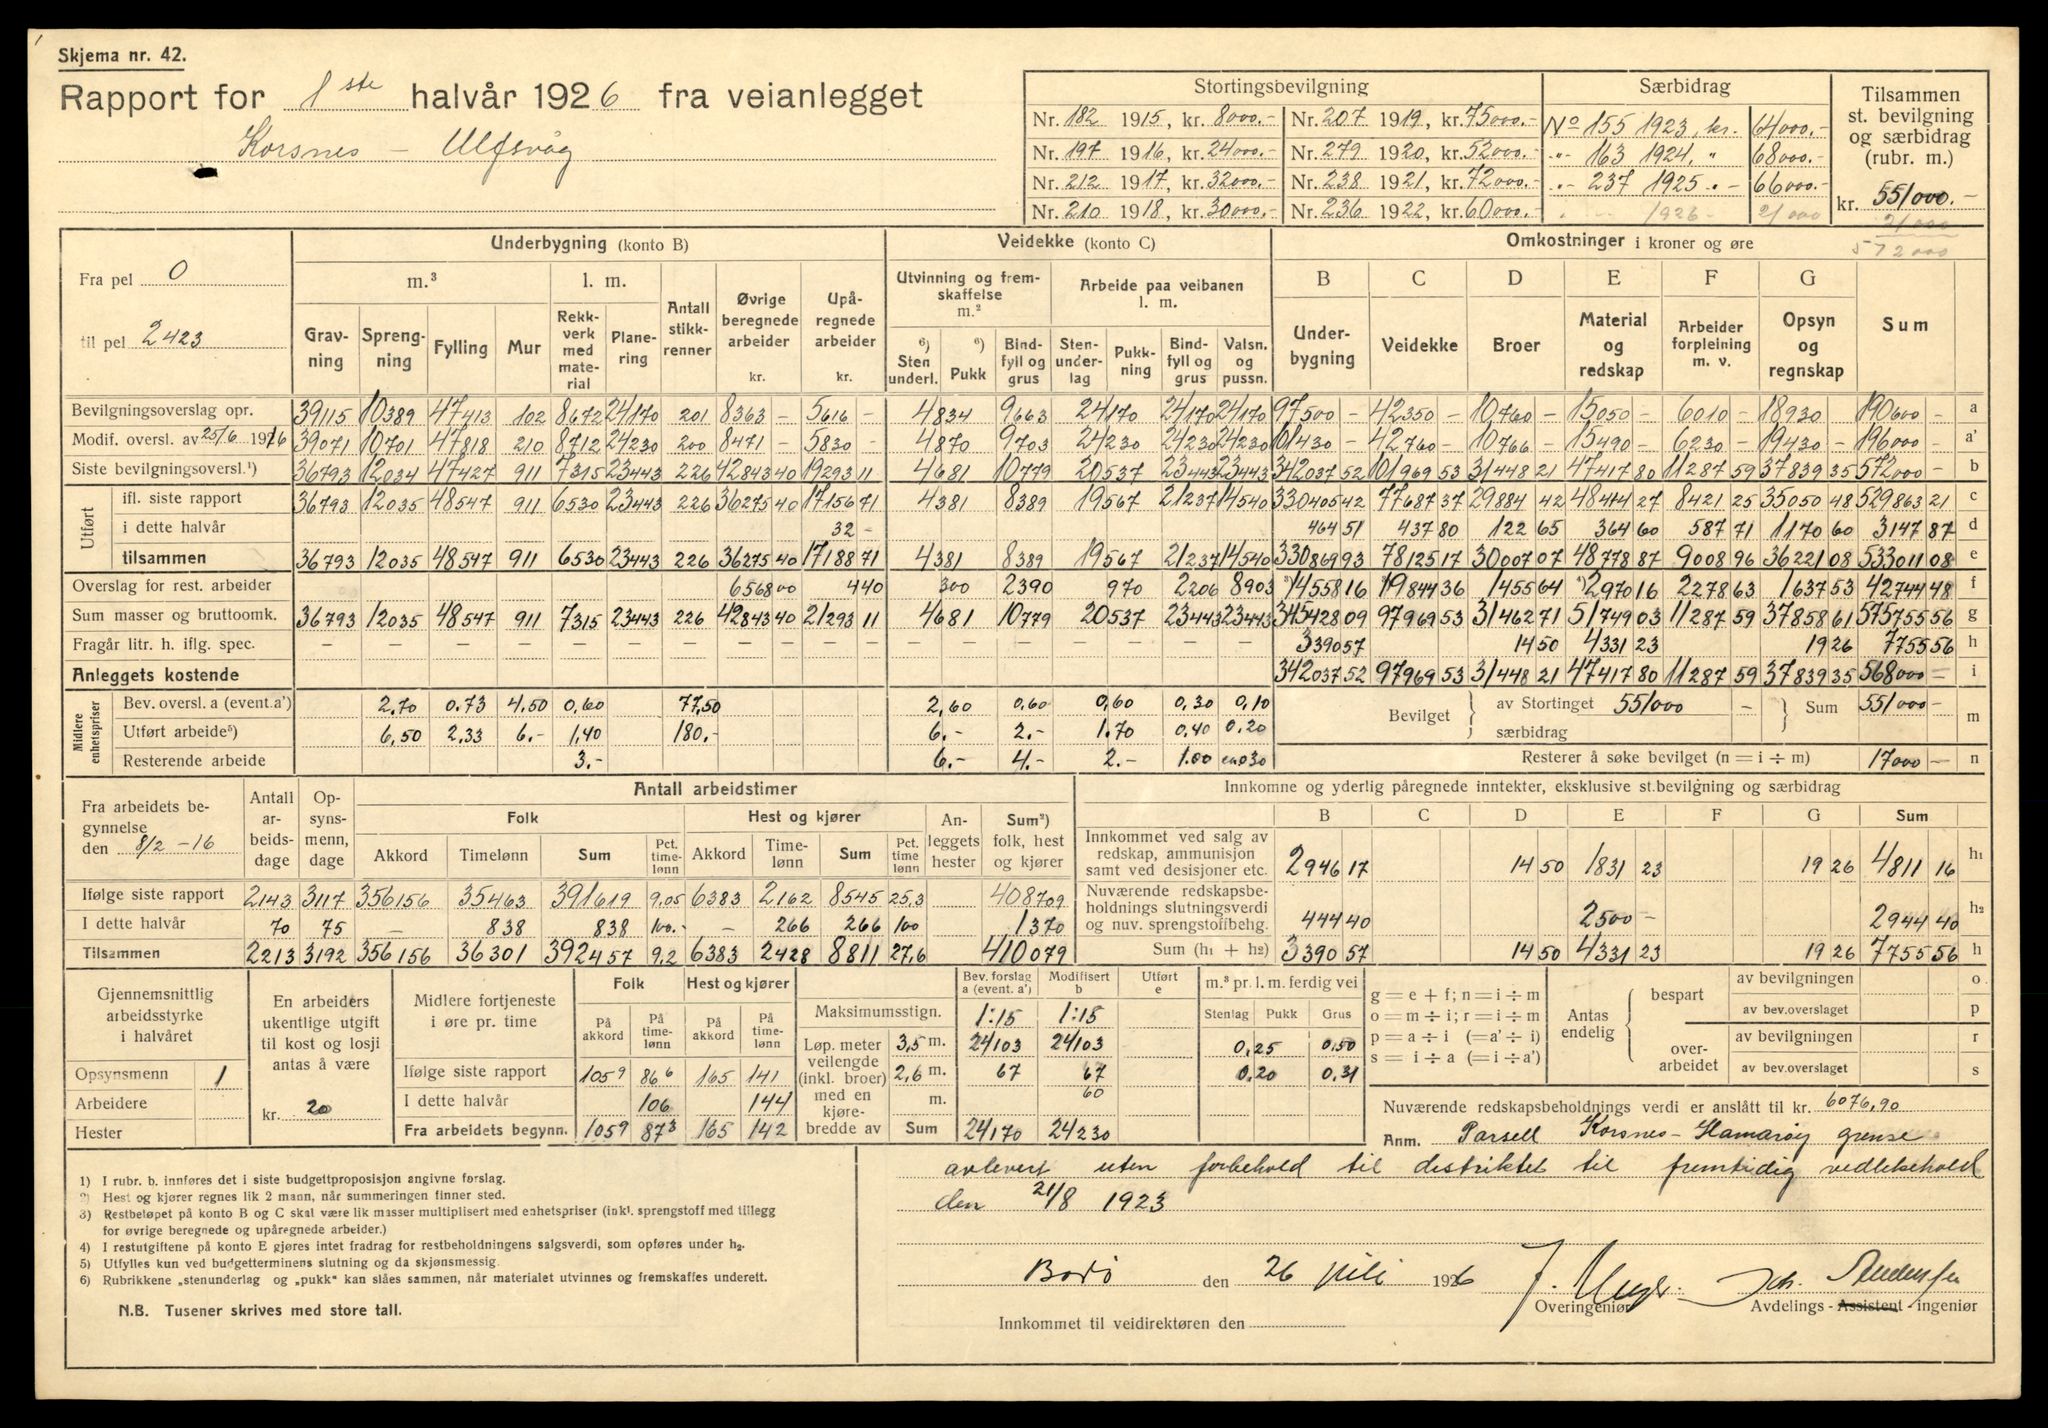 Skjema nr. 42.
Rapport for 1ste halvår 1926 fra veianlegget
Korsnes – Ulfsvåg
Stortingsbevilgning
Nr. 182 1915, kr. 8000.- Nr. 207 1919, kr. 75000.-
Nr. 197 1916, kr. 24000.- Nr. 279 1920, kr. 52000.-
Nr. 212 1917, kr. 32000.- Nr. 238 1921, kr. 72000.-
Nr. 210 1918, kr. 30000.- Nr. 236 1922, kr. 60000.-
Særbidrag
No 155 1923, kr. 64000.-
" 163 1924, " 68000.-
" 237 1925 " 66000.-
1926 - 21000
Tilsammen
st. bevilgning
og særbidrag
(rubr. m.)
kr. 551000.-
21000
572000
Fra pel 0
til pel 2423
Underbygning (konto B)
m.³ l. m.
Grav-
ning Spreng-
ning Fylling Mur Rekk-
verk med
mate-
rial Plane-
ring Antall
stikk-
renner Øvrige
beregnede
arbeider
kr. Upå-
regnede
arbeider
kr.
Veidekke (konto C)
Utvinning og frem-
skaffelse
m.²
⁶) Sten
underl. ⁶) Pukk Bind-
fyll og
grus
Arbeide paa veibanen
l. m.
Sten-
under-
lag Pukk-
ning Bind-
fyll og
grus Valsn.
og
pussn.
Omkostninger i kroner og øre
B C D E F G
Under-
bygning Veidekke Broer Material
og
redskap Arbeider
forpleining
m. v. Opsyn
og
regnskap Sum
Bevilgningsoverslag opr. 39115 10389 47413 102 8672 24170 201 8363 – 5616 – 4834 9663 24170 24170 24170 97500 – 42350 – 10760 – 15050 – 6010 – 18930 190600 – a
Modif. oversl. av 25/6 1916 39071 10701 47818 210 8712 24230 200 8471 – 5830 – 4870 9703 24230 24230 24230 101430 – 42760 – 10766 – 15490 – 6230 – 19430 – 196000 – a'
Siste bevilgningsoversl.¹) 36793 12034 47427 911 7315 23443 226 42843 40 19293 11 4681 10779 20537 23443 23443 342037 52 101969 53 31448 21 47417 80 11287 59 37839 35 572000 – b
Utført
ifl. siste rapport 36793 12035 48547 911 6530 23443 226 36275 40 17156 71 4381 8389 19567 21237 14540 330405 42 77687 37 29884 42 48414 27 8421 25 35050 48 529863 21 c
i dette halvår 32 – 464 51 437 80 122 65 364 60 587 71 1170 60 3147 87 d
tilsammen 36793 12035 48547 911 6530 23443 226 36275 40 17188 71 4381 8389 19567 21237 14540 330869 93 78125 17 30007 07 48778 87 9008 96 36221 08 533011 08 e
Overslag for rest. arbeider 6568 00 440 300 2390 970 2206 8903 ³)14558 16 ³)19844 36 1455 64 ⁴)2970 16 2278 63 1637 53 42744 48 f
Sum masser og bruttoomk. 36793 12035 48547 911 7315 23443 226 42843 40 21293 11 4681 10779 20537 23443 23443 345428 09 97969 53 31462 71 51749 03 11287 59 37858 61 575755 56 g
Fragår litr. h. iflg. spec. – – – – – – – – – – – – – – 3390 57 14 50 4331 23 19 26 7755 56 h
Anleggets kostende 342037 52 97969 53 31448 21 47417 80 11287 59 37839 35 568000 – i
Midlere
enhetspriser
Bev. oversl. a (event. a') 2.70 0.73 4.50 0.60 77.50 2,60 0,60 0,60 0,30 0,10
Utført arbeide⁵) 6,50 2.33 6.- 1,40 180.- 6.- 2.- 1.70 0.40 0.20
Resterende arbeide 3.- 6.- 4.- 2.- 1.00 0.30
Bevilget av Stortinget 551000 – særbidrag Sum 551000 – m
Resterer å søke bevilget (n = i ÷ m) 17000 – n
Fra arbeidets be-
gynnelse
den 8/2 – 16
Antall
ar-
beids-
dage Op-
syns-
menn,
dage
Antall arbeidstimer
Folk
Akkord Timelønn Sum Pct.
time-
lønn
Hest og kjører
Akkord Time-
lønn Sum Pct.
time
lønn
An-
leggets
hester Sum²)
folk, hest
og kjører
Ifølge siste rapport 2143 3117 356156 35463 391619 9,05 6383 2162 8545 25,3 408709
I dette halvår 70 75 – 838 838 100.- – 266 266 100 1370
Tilsammen 2213 3192 356156 36301 392457 9.2 6383 2428 8811 27,6 410079
Innkomne og yderlig påregnede inntekter, eksklusive st.bevilgning og særbidrag
B C D E F G Sum
Innkommet ved salg av
redskap, ammunisjon
samt ved desisjoner etc. 2946 17 14 50 1831 23 19 26 4811 16 h₁
Nuværende redskapsbe-
holdnings slutningsverdi
og nuv. sprengstoffbehg. 444 40 2500 – 2944 40 h₂
Sum (h₁ + h₂) 3390 57 14 50 4331 23 19 26 7755 56 h
Gjennemsnittlig
arbeidsstyrke
i halvåret
Opsynsmenn 1
Arbeidere
Hester
En arbeiders
ukentlige utgift
til kost og losji
antas å være
kr. 20
Midlere fortjeneste
i øre pr. time
Folk Hest og kjører
På
akkord På
time-
lønn På
akkord På
time-
lønn
Ifølge siste rapport 105⁹ 86⁶ 165 141
I dette halvår 106 144
Fra arbeidets begynn. 105⁹ 87³ 165 142
Bev. forslag
a (event. a') Modifisert
b Utført
e
Maksimumsstign. 1:15 1:15
Løp. meter
veilengde
(inkl. broer)
med en
kjøre-
bredde av
3,5 m. 24103 24103
2,6 m. 67 67
m. 60
Sum 24170 24230
m.³ pr. l. m. ferdig vei
Stenlag Pukk Grus
0,25 0,50
0,20 0,31
g = e + f; n = i ÷ m
o = m ÷ i; r = i ÷ m
p = a ÷ i (= a' ÷ i)
s = i ÷ a (= i ÷ a')
Antas
endelig
bespart av bevilgningen o
av bev.overslaget p
over-
arbeidet av bevilgningen r
av bev. overslaget s
Nuværende redskapsbeholdnings verdi er anslått til kr. 6076,90
Anm. Parsell Korsnes – Hamarøy grense
avlevert uten forbehold til distriktet til fremtidig vedlikehold
den 21/8 1923
1) I rubr. b. innføres det i siste budgettproposisjon angivne forslag.
2) Hest og kjører regnes lik 2 mann, når summeringen finner sted.
3) Restbeløpet på konto B og C skal være lik masser multiplisert med enhetspriser (inkl. sprengstoff med tillegg
for øvrige beregnede og upåregnede arbeider.)
4) I restutgiftene på konto E gjøres intet fradrag for restbeholdningens salgsverdi, som opføres under h₂.
5) Utfylles kun ved budgetterminens slutning og da skjønsmessig.
6) Rubrikkene „stenunderlag og „pukk“ kan slåes sammen, når materialet utvinnes og fremskaffes underett.
N.B. Tusener skrives med store tall.
Bodø den 26 juli 1926
Overingeniør Avdelings - Assistent - ingeniør
Innkommet til veidirektøren den